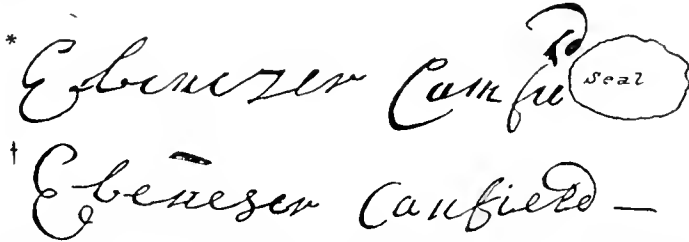 * Ebenezer Camfield Seal
† Ebenezer Canfield —